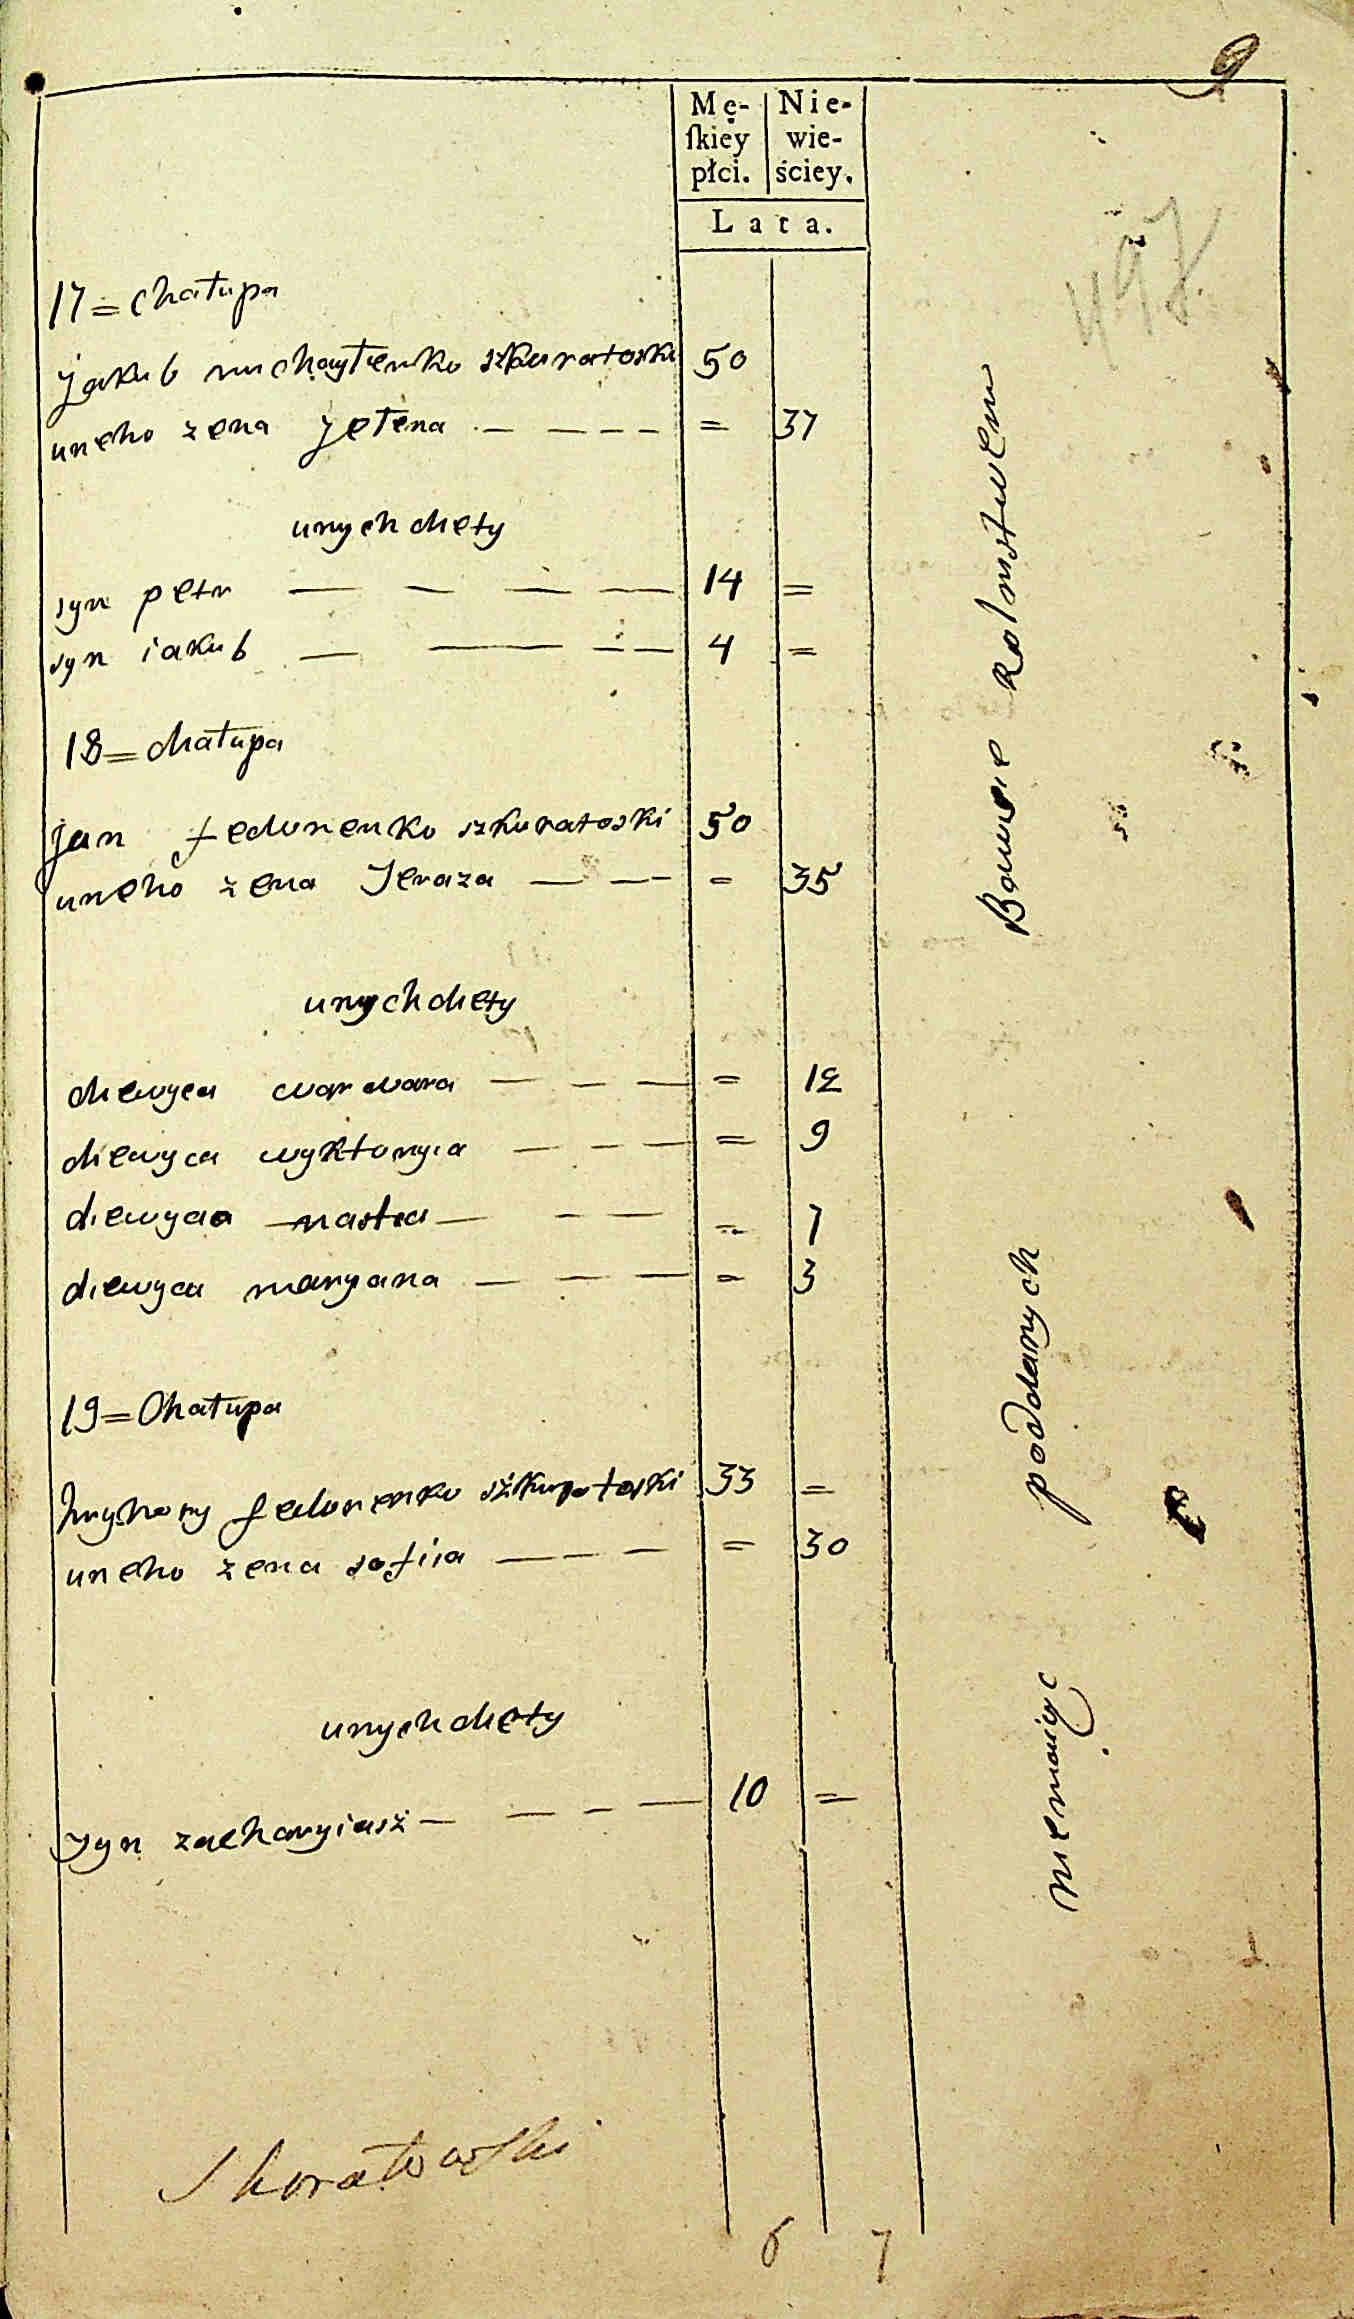 9
Mę- Nie-
ſkiey wie-
płci. ściey.
Lata.
497
17 = chałupa
Jakub michayłenko szkuratoski 50
uneho zena Jełena - - - - - = 37
unych diety
syn petr - - - - 14 =
syn iakub - - - - 4 =
18 = chałupa
jan fedorenko szkuratoski 50
uneho zena Jeraza - - - = 35
unych diety
diewyca warwara - - - = 12
diewyca wyktoryia - - - = 9
diewyca nasta - - - = 7
diewyca maryana - - - = 3
19 = Chałupa
hryhory fedorenko szkuratoski 33 =
uneho zena sofiia - - - = 30
unych diety
syn zacharyiasz - - - - 10 =
Skoratowski
6 7
Bawiąc rolnictwem
poddanych
niemaiąc